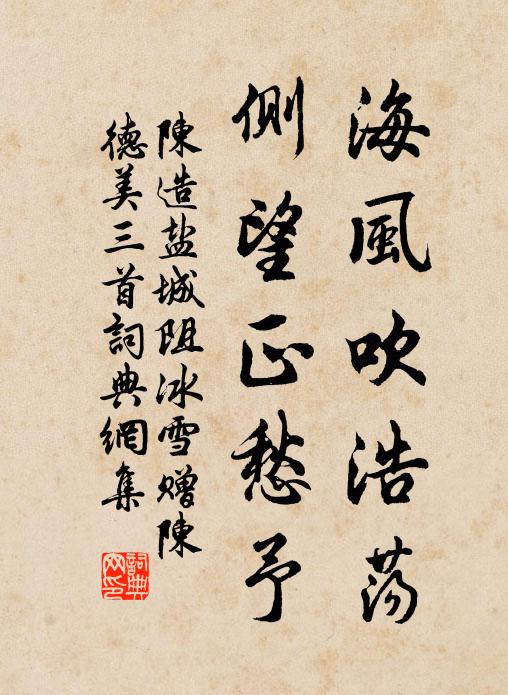 海風吹浩蕩
側望正愁予
陳造盐城阻冰雪赠陳
德美三首詞典網集
詞典
网印